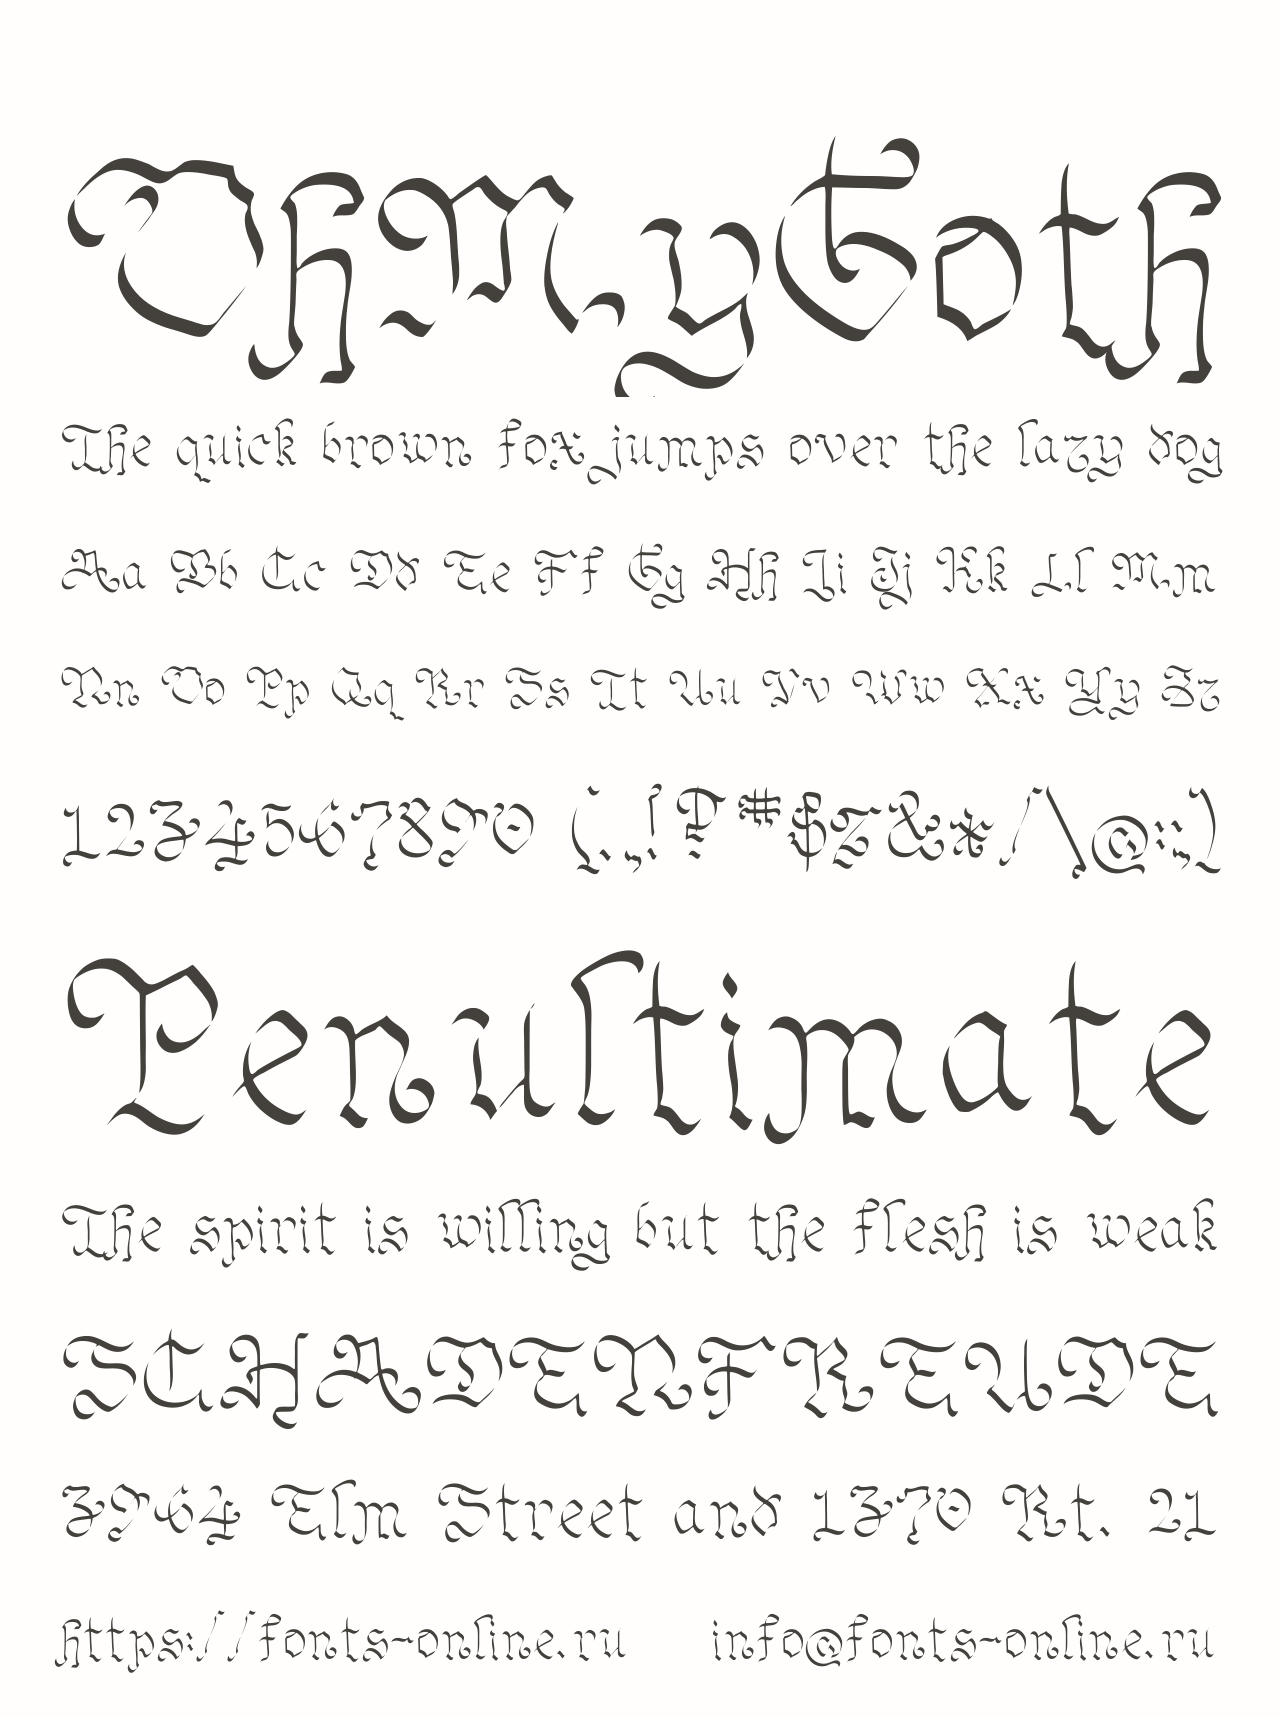 OhMyGoth
The quick brown fox jumps over the lazy dog
Aa Bb Cc Dd Ee Ff Gg Hh Ii Jj Kk Ll Mm
Nn Oo Pp Qq Rr Ss Tt Uu Vv Ww Xx Yy Zz
1234567890 (.,!?#$%&*/\@:;)
Penultimate
The spirit is willing but the flesh is weak
SCHADENFREUDE
3964 Elm Street and 1370 Rt. 21
https://fonts-online.ru info@fonts-online.ru